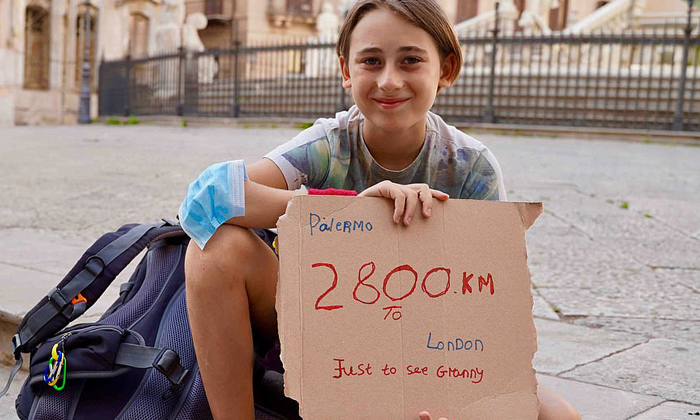 Palermo
2800.KM
To
London
Just to see Granny